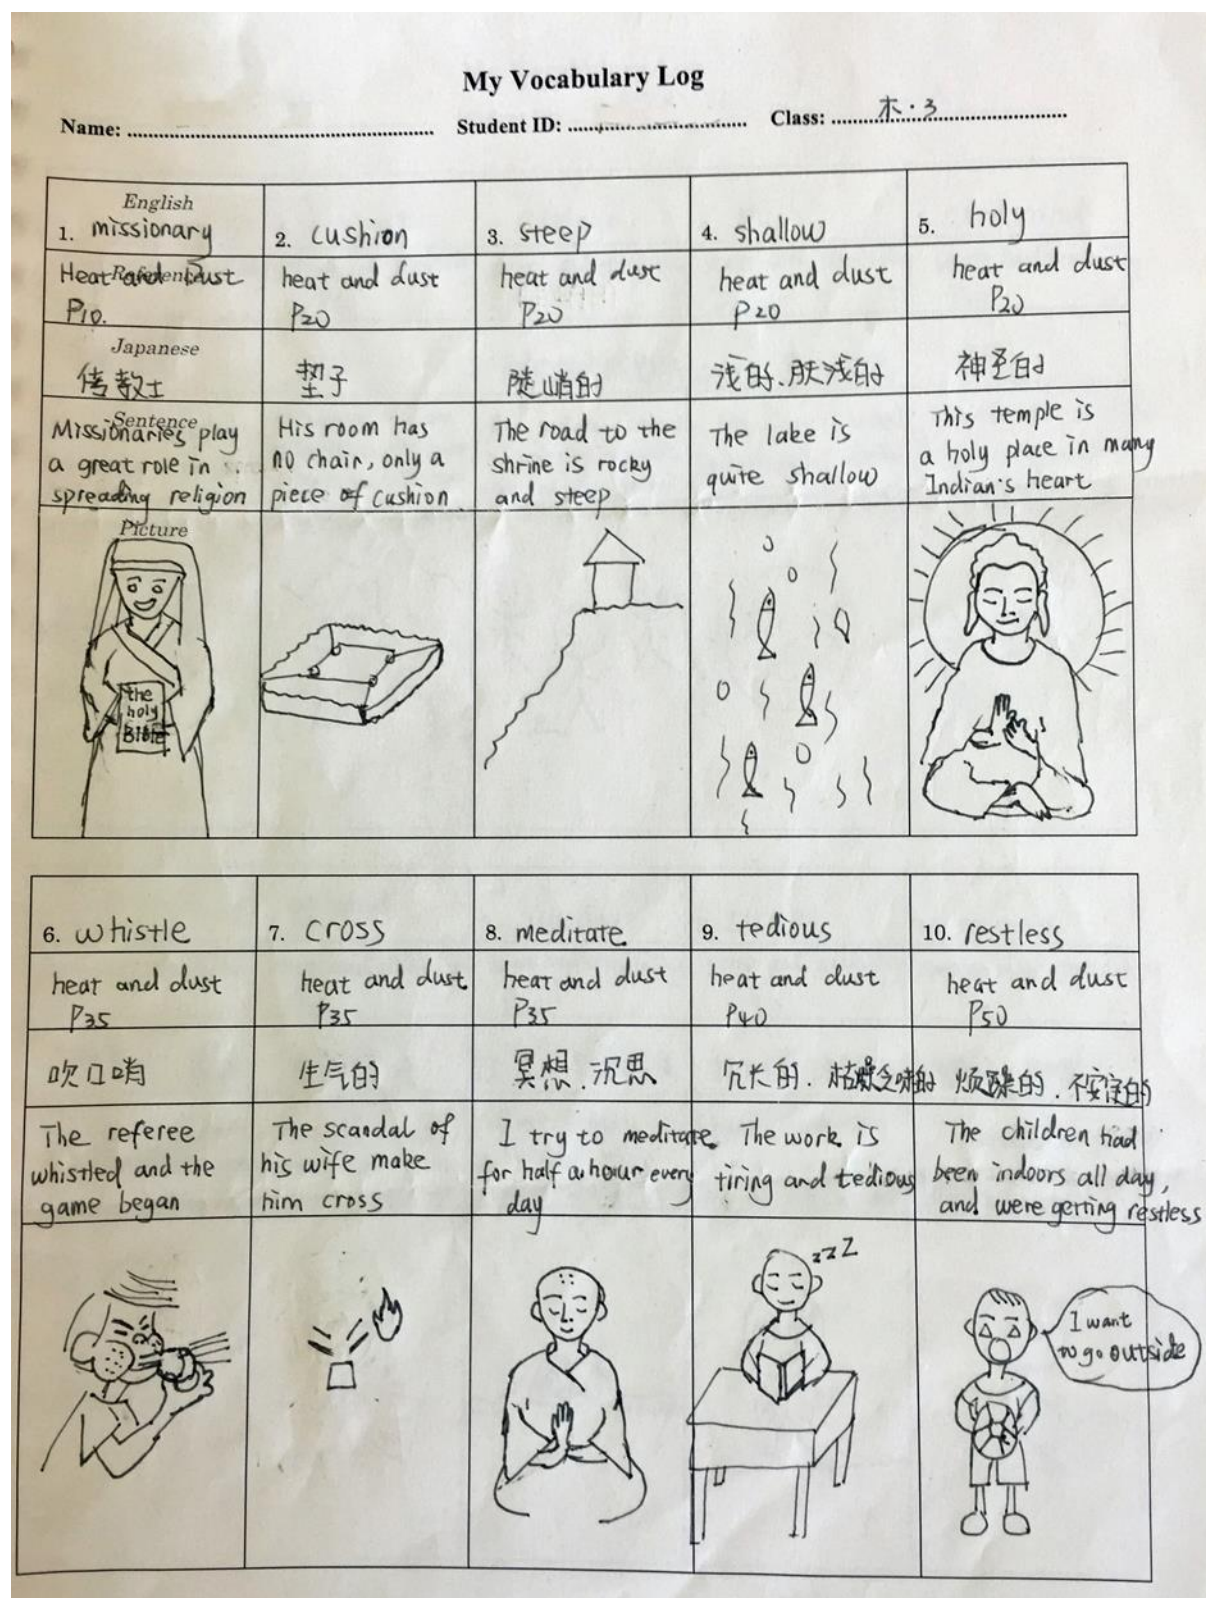 My Vocabulary Log
Name: Student ID: Class: 木・3
English
1. missionary
2. cushion
3. steep
4. shallow
5. holy
Reference
Heat and Dust
P10.
heat and dust
P20
heat and dust
P20
heat and dust
P20
heat and dust
P20
Japanese
传教士
垫子
陡峭的
浅的、肤浅的
神圣的
Sentence
Missionaries play
a great role in
spreading religion
His room has
no chair, only a
piece of cushion.
The road to the
shrine is rocky
and steep
The lake is
quite shallow
This temple is
a holy place in many
Indian's heart
Picture
the
holy
Bible
6. whistle
7. cross
8. meditate
9. tedious
10. restless
heat and dust
P35
heat and dust
P35
heat and dust
P35
heat and dust
P40
heat and dust
P50
吹口哨
生气的
冥想、沉思
冗长的、枯燥乏味的
烦躁的、不安定的
The referee
whistled and the
game began
The scandal of
his wife make
him cross
I try to meditate
for half a hour every
day
The work is
tiring and tedious
The children had
been indoors all day,
and were getting restless
zzZ
I want
to go outside